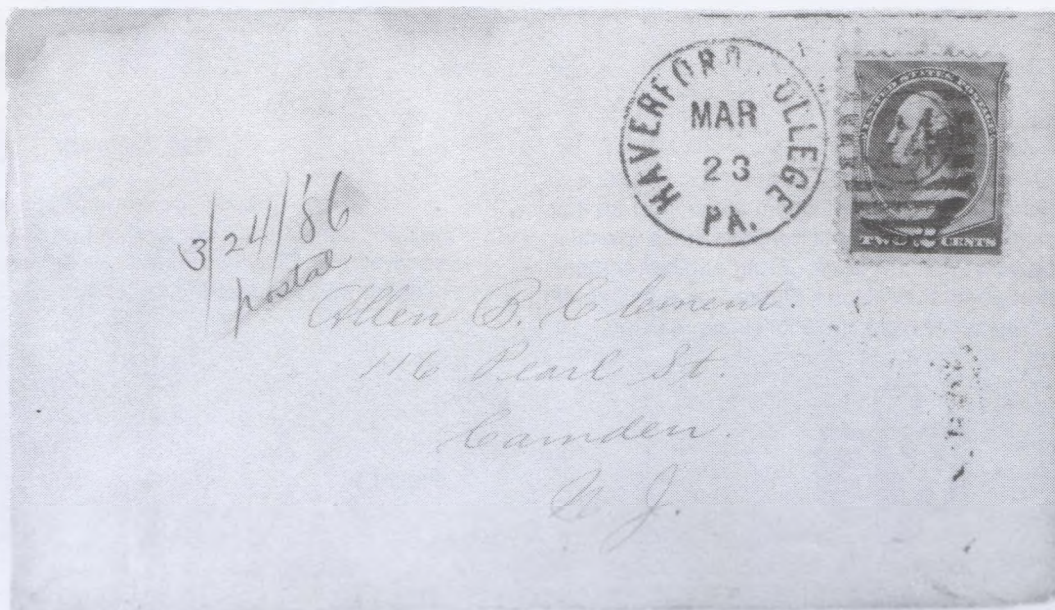 HAVERFORD COLLEGE
MAR
23
PA.
UNITED STATES POSTAGE
TWO 2 CENTS
3/24/86
postal
Allen B. Clement.
116 Pearl St.
Camden.
N. J.